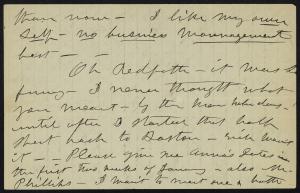 than now — I like my own
self — no business management
best — —
Oh Redpath — it was so
funny — I never thought what
you meant — by the man who does,
until after I started that half
sheet back to Boston — with
it — Please give me Anna's dates in
the first two weeks of — also Mr
Phillips — I want to meet one & both